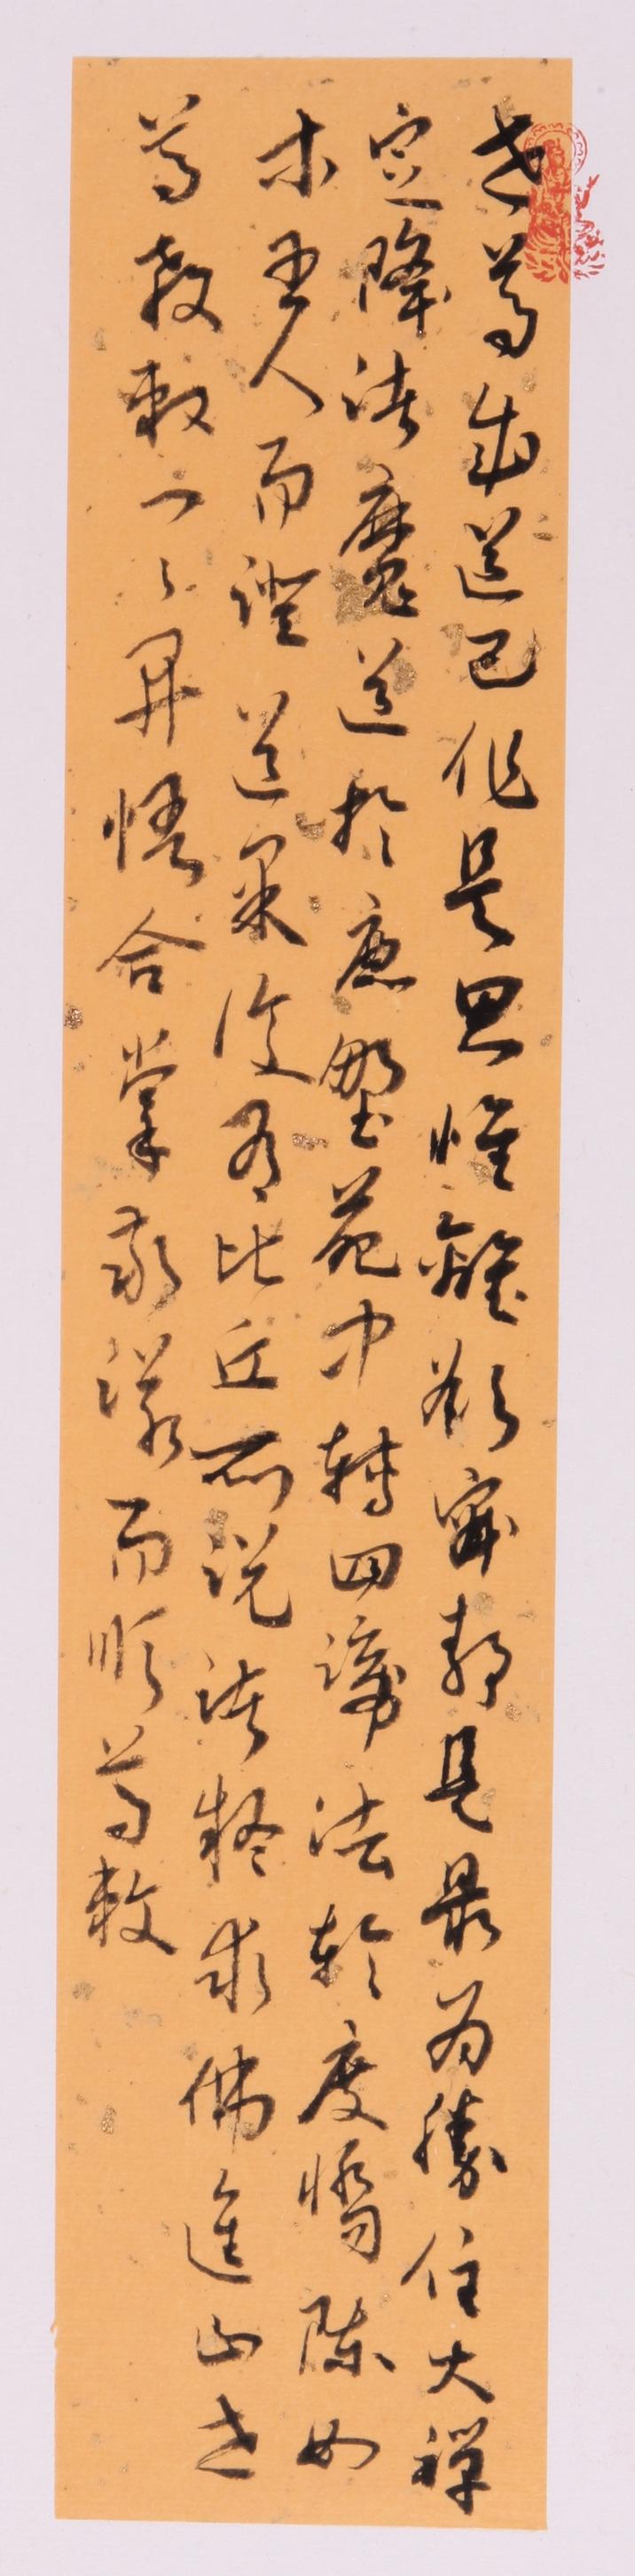 世尊成道已作是思惟離欲寂靜是最為勝住大禪
定降諸魔道於鹿野苑中轉四諦法輪度憍陳如
等五人而證道果復有比丘所說諸疑求佛進止世
尊教敕一一開悟合掌敬諾而順尊敕